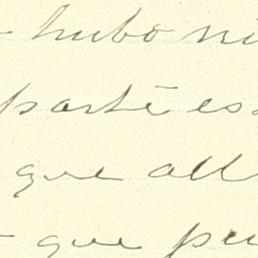 hubo ni
parte es
que all
que pu